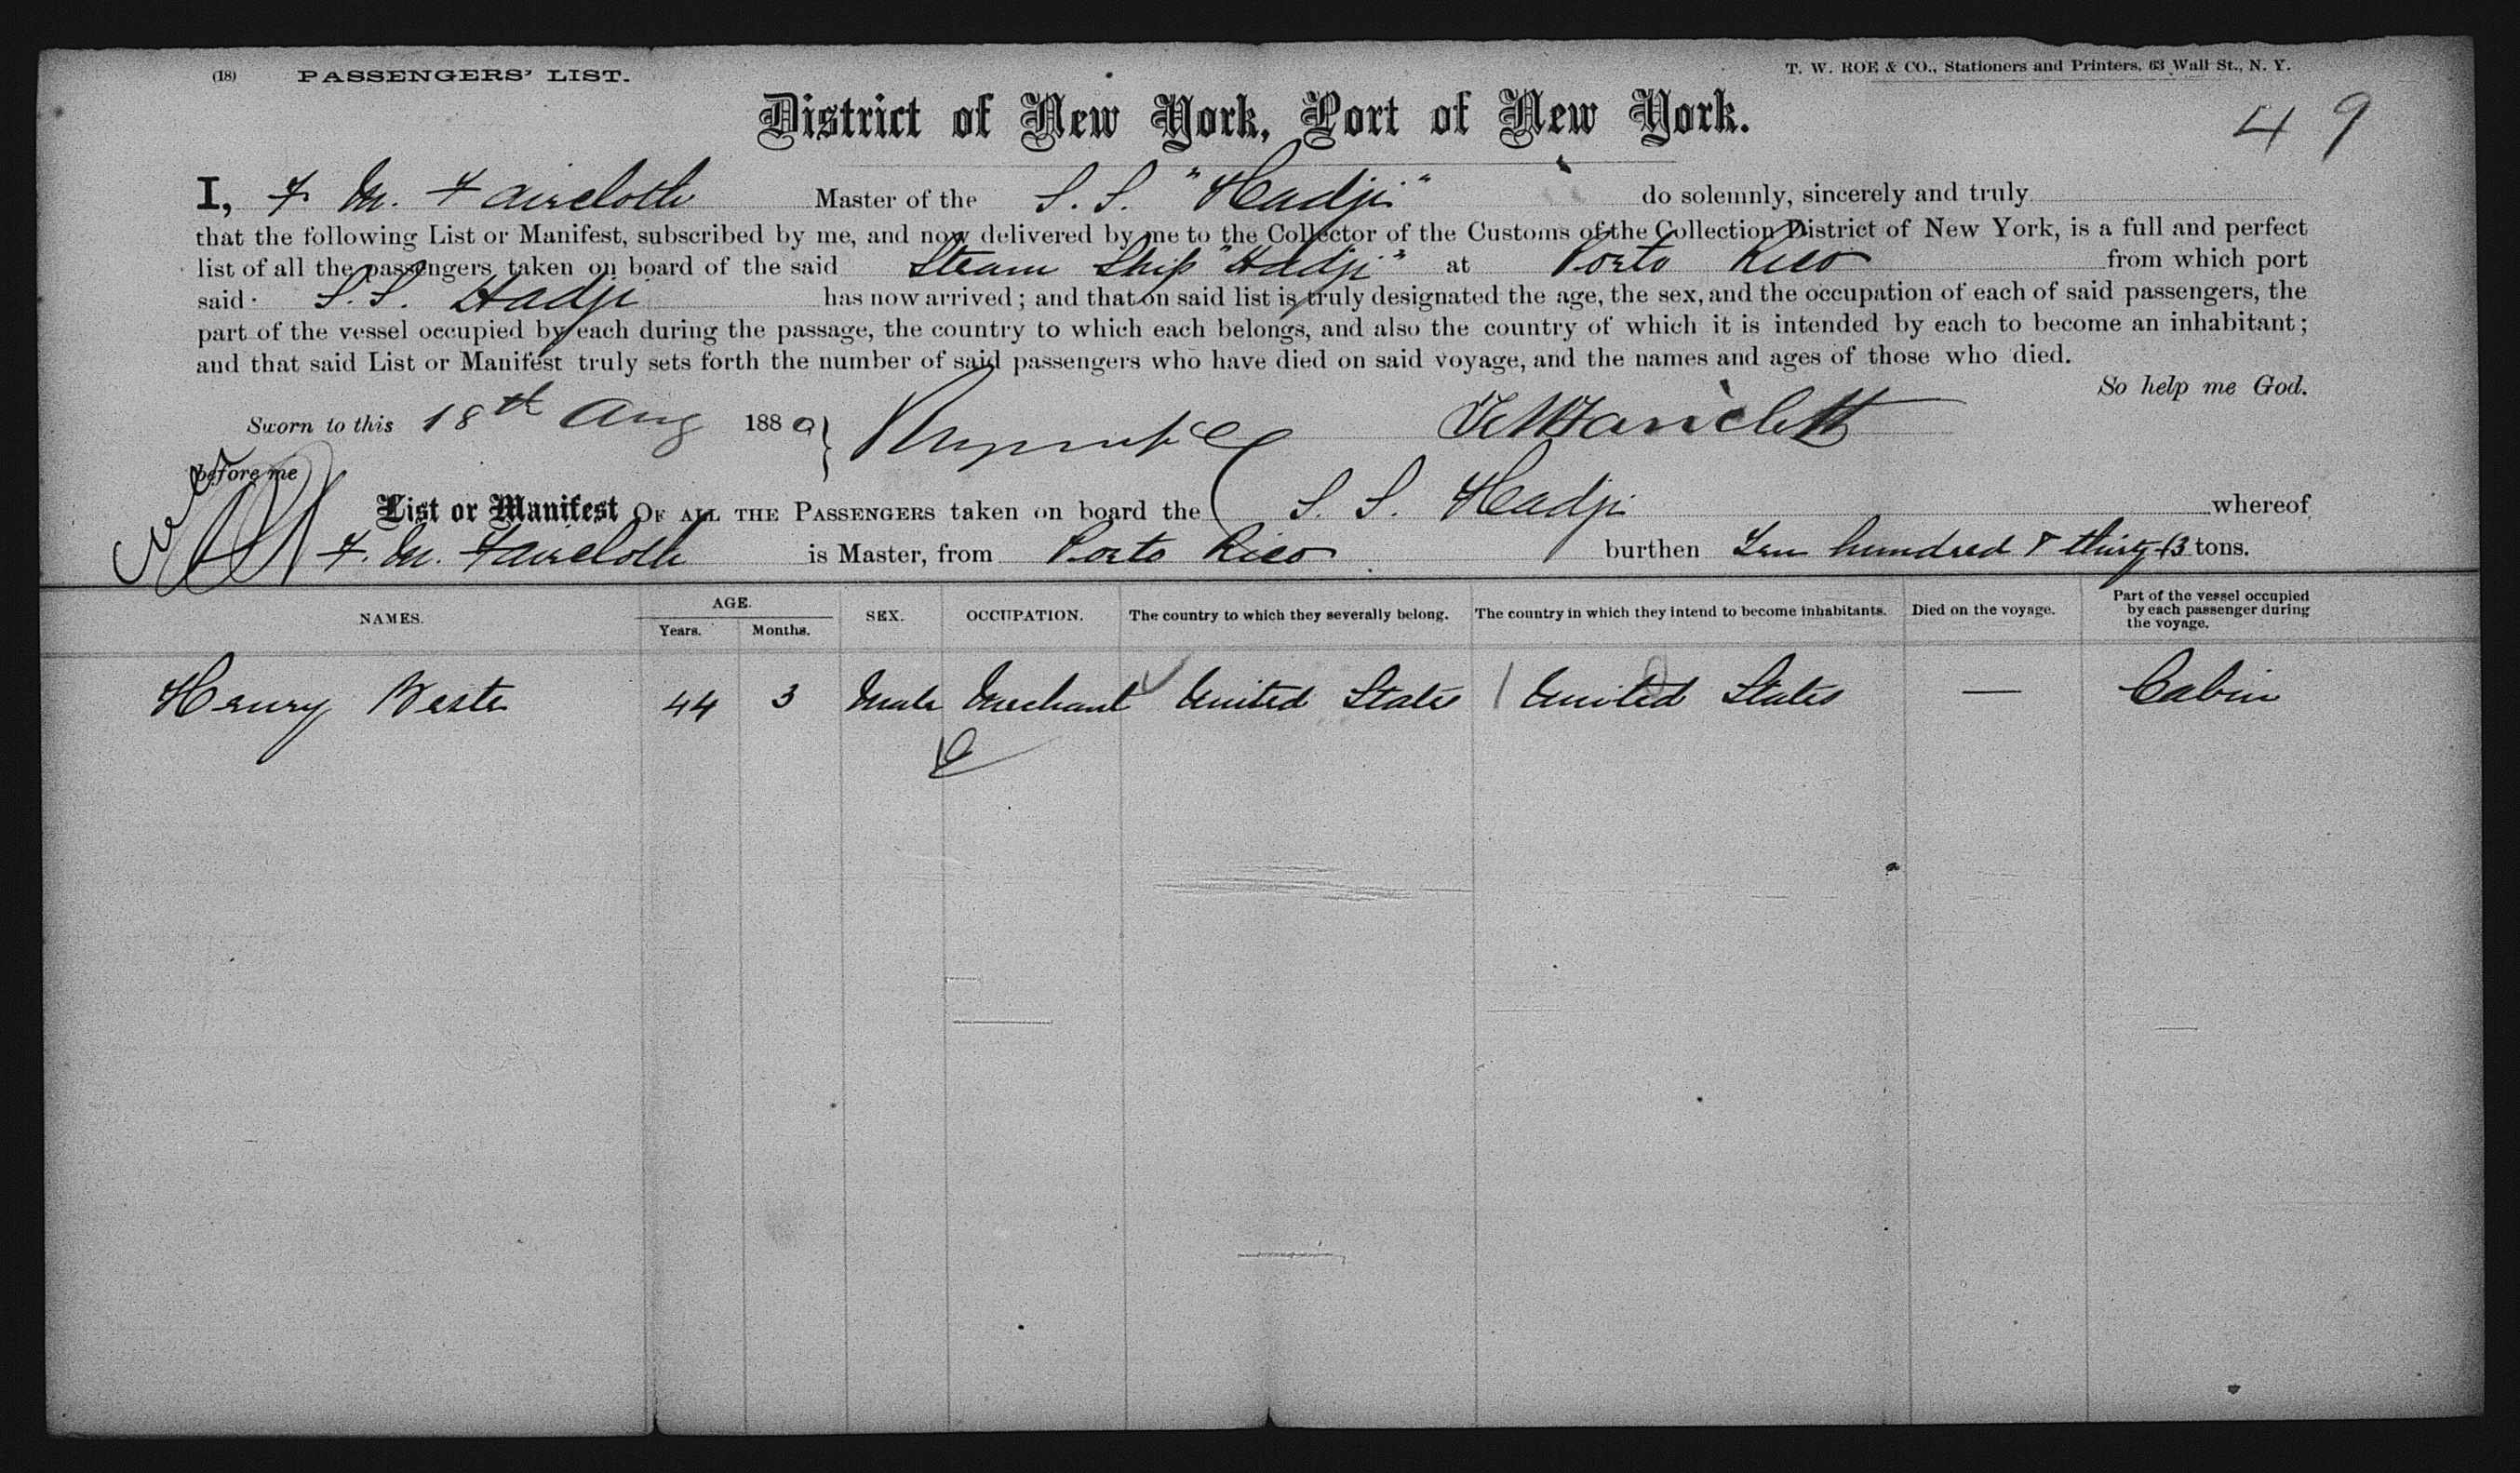 (18) PASSENGERS' LIST. T. W. ROE & CO., Stationers and Printers, 63 Wall St., N. Y.
District of New York, Port of New York.
49
I, F. M. Faircloth Master of the S. S. "Hadji" do solemnly, sincerely and truly
that the following List or Manifest, subscribed by me, and now delivered by me to the Collector of the Customs of the Collection District of New York, is a full and perfect
list of all the passengers taken on board of the said Steam Ship "Hadji" at Porto Rico from which port
said S. S. Hadji has now arrived; and that on said list is truly designated the age, the sex, and the occupation of each of said passengers, the
part of the vessel occupied by each during the passage, the country to which each belongs, and also the country of which it is intended by each to become an inhabitant;
and that said List or Manifest truly sets forth the number of said passengers who have died on said voyage, and the names and ages of those who died.
So help me God.
Sworn to this 18th Aug 1889 F M Faircloth
before me
List or Manifest OF ALL THE PASSENGERS taken on board the S. S. Hadji whereof
F. M. Faircloth is Master, from Porto Rico burthen Ten hundred & thirty 13 tons.
NAMES. AGE. Years. Months. SEX. OCCUPATION. The country to which they severally belong. The country in which they intend to become inhabitants. Died on the voyage. Part of the vessel occupied by each passenger during the voyage.
Henry 44 3 Male Merchant United States United States — Cabin